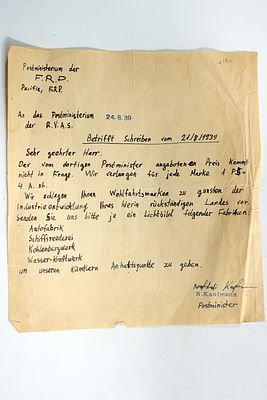 Postministerium der
F.R.P.
Pacifia, F.R.P.
An das Postministerium 24.8.39
der R.V.A.S.
Betrifft Schreiben vom 21/8/1939
Sehr geehrter Herr.
Der vom dortigen Postminister angebotenen Preis kommt
nicht in Frage. Wir verlangen für jede Marke 1 P$-
4 A.sh.
Wir schlagen Ihnen Wohlfahrtsmarken zu gunsten der
Industrieentwicklung Ihres hierin rückständigen Landes vor.
Senden Sie uns bitte je ein Lichtbild folgender Fabriken:
Autofabrik
Schiffsreederei
Kohlenbergwerk
Wasser-Kraftwerk
um unseren Künstlern Anhaltspunkte zu geben.
N. Kaufmann
Postminister